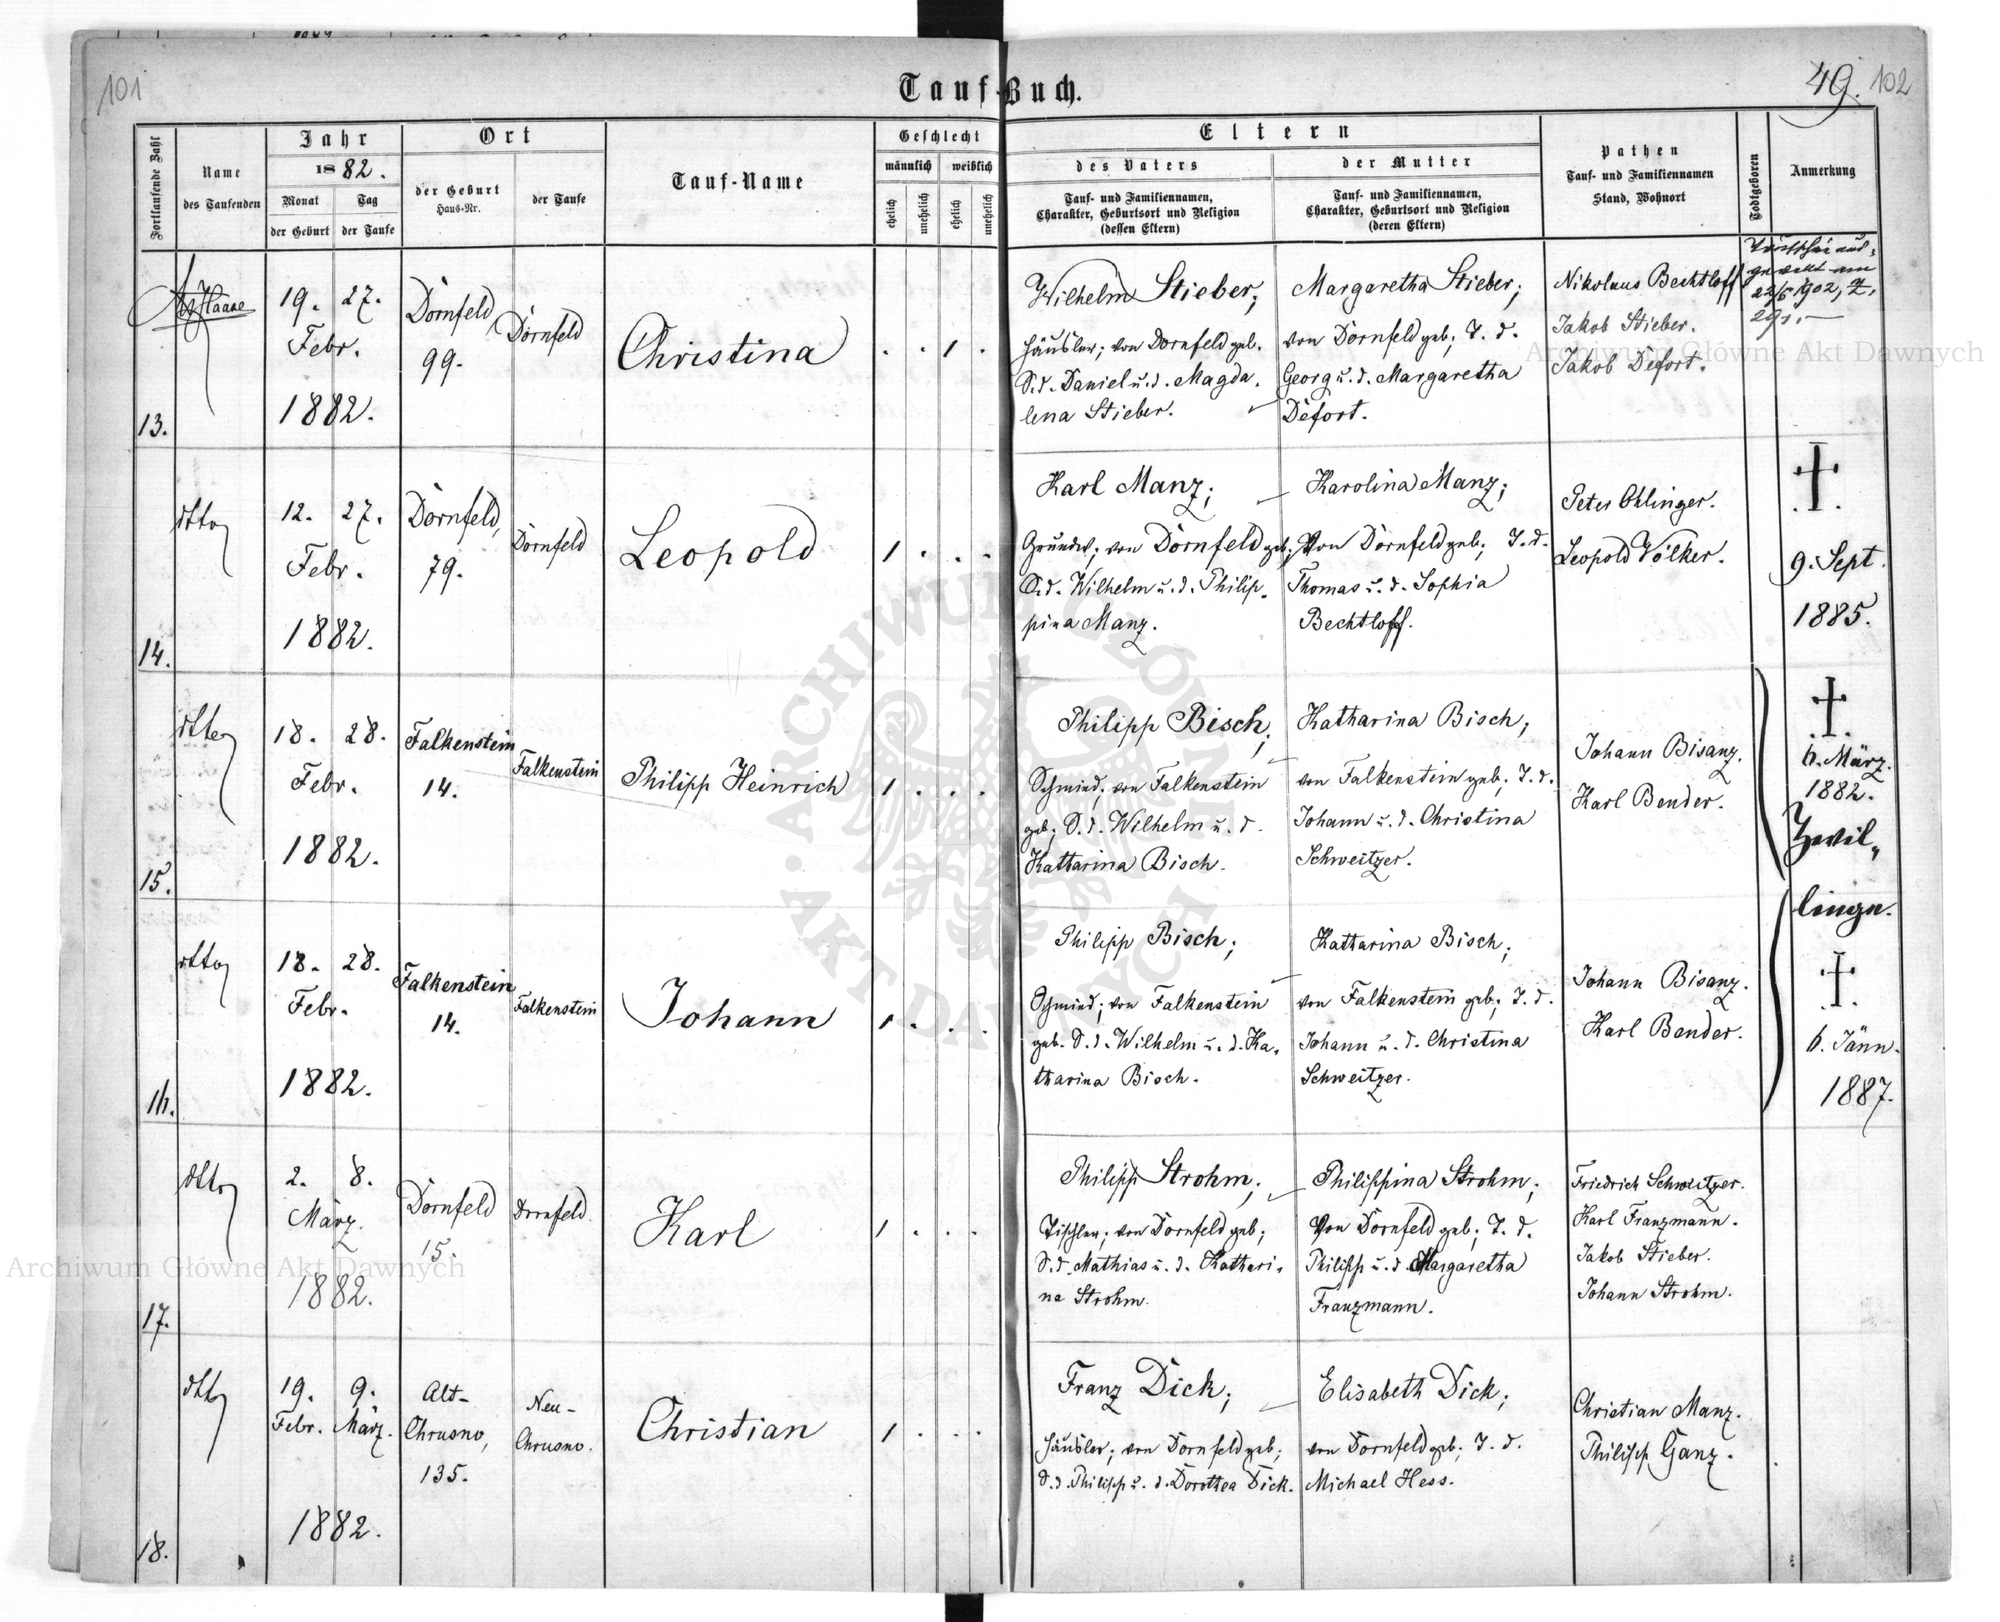 101
Tauf-Buch.
49. 102
Fortlaufende Zahl
Name
des Taufenden
Jahr
1882.
Monat
der Geburt
Tag
der Taufe
Ort
der Geburt
Haus-Nr.
der Taufe
Tauf-Name
Geschlecht
männlich
weiblich
ehelich
unehelich
ehelich
unehelich
Eltern
des Vaters
Tauf- und Familiennamen,
Charakter, Geburtsort und Religion
(dessen Eltern)
der Mutter
Tauf- und Familiennamen,
Charakter, Geburtsort und Religion
(deren Eltern)
Pathen
Tauf- und Familiennamen
Stand, Wohnort
Todtgeboren
Anmerkung
13.
Haase
19. 27.
Febr.
1882.
Dornfeld,
99.
Dornfeld
Christina
1
Wilhelm Stieber;
Häusler; von Dornfeld geb.
S.d. Daniel u. d. Magda-
lena Stieber.
Margaretha Stieber;
von Dornfeld geb; T. d.
Georg u. d. Margaretha
Defort.
Nikolaus Bechtloff
Jakob Stieber.
Jakob Defort.
Taufschein aus-
gestellt am
22/5 1902, Z.
291.
14.
dtto
12. 27.
Febr.
1882.
Dornfeld,
79.
Dornfeld
Leopold
1
Karl Manz;
Grundw; von Dornfeld geb;
S.d. Wilhelm u. d. Philip-
pina Manz.
Karolina Manz;
Von Dornfeld geb; T. d.
Thomas u. d. Sophia
Bechtloff.
Peter Ohlinger.
Leopold Völker.
9. Sept.
1885.
15.
dtto
18. 28.
Febr.
1882.
Falkenstein
14.
Falkenstein
Philipp Heinrich
1
Philipp Bisch;
Schmied; von Falkenstein
geb; S. d. Wilhelm u. d.
Katharina Bisch.
Katharina Bisch;
von Falkenstein geb; T. d.
Johann u. d. Christina
Schweitzer.
Johann Bisanz.
Karl Bender.
6. März
1882.
Zwil-
16.
dtto
18. 28.
Febr.
1882.
Falkenstein
14.
Falkenstein
Johann
1
Philipp Bisch;
Schmied; von Falkenstein
geb. S. d. Wilhelm u. d. Ka-
tharina Bisch.
Katharina Bisch;
von Falkenstein geb; T. d.
Johann u. d. Christina
Schweitzer.
Johann Bisanz.
Karl Bender.
linge.
6. Jänn.
1887.
17.
dtto
2. 8.
März.
1882.
Dornfeld
15.
Dornfeld.
Karl
1
Philipp Strohm;
Tischler; von Dornfeld geb;
S.d. Mathias u. d. Kathari-
na Strohm.
Philippina Strohm;
Von Dornfeld geb; T. d.
Philipp u. d. Margaretha
Franzmann.
Friedrich Schweitzer.
Karl Franzmann.
Jakob Stieber.
Johann Strohm.
18.
dtto
19. 9.
Febr. März.
1882.
Alt-
Chrusno,
135.
Neu-
Chrusno.
Christian
1
Franz Dick;
Häusler; von Dornfeld geb;
S.d. Philipp u. d. Dorothea Dick.
Elisabeth Dick;
von Dornfeld geb; T. d.
Michael Hess.
Christian Manz.
Philipp Ganz.
Archiwum Główne Akt Dawnych
Archiwum Główne Akt Dawnych
ARCHIWUM GŁÓWNE
AKT DAWNYCH